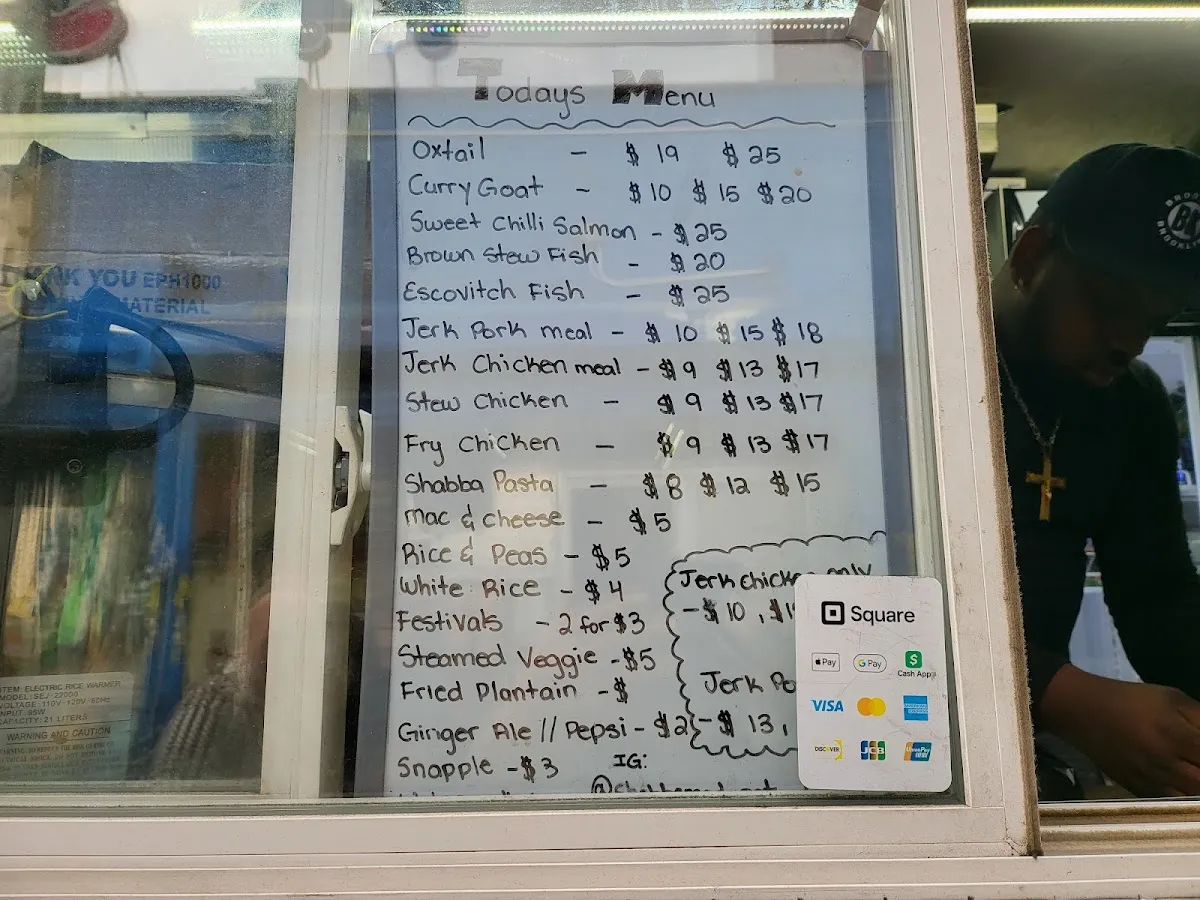 Todays Menu
Oxtail - $ 19 $ 25
Curry Goat - $ 10 $ 15 $ 20
Sweet Chilli Salmon - $ 25
Brown Stew Fish - $ 20
Escovitch Fish - $ 25
Jerk Pork meal - $ 10 $ 15 $ 18
Jerk Chicken meal - $ 9 $ 13 $ 17
Stew Chicken - $ 9 $ 13 $ 17
Fry Chicken - $ 9 $ 13 $ 17
Shabba Pasta - $ 8 $ 12 $ 15
Mac & Cheese - $ 5
Rice & Peas - $ 5
White Rice - $ 4
Festivals - 2 for $3
Steamed Veggie - $5
Fried Plantain - $
Ginger Ale // Pepsi - $2
Snapple - $3
IG:
Jerk chicken only
- $ 10 ,
Jerk
- $ 13 ,
Square
Pay
G Pay
Cash App
VISA
AMERICAN EXPRESS
DISCOVER
JCB
UnionPay
YOU EPH1000
MATERIAL
ITEM: ELECTRIC RICE WARMER
MODEL: SEJ-22000
VOLTAGE: 110V-120V 60Hz
INPUT: 95W
CAPACITY: 21 LITERS
WARNING AND CAUTION